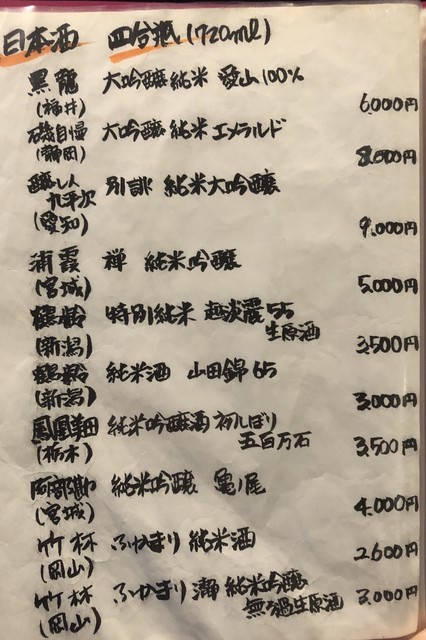 日本酒 四合瓶(720ml)
黒龍 大吟醸純米 愛山100%
(福井) 6,000円
磯自慢 大吟醸 純米 エメラルド
(静岡) 8,600円
醸し人 別誂 純米大吟醸
九平次
(愛知) 9,000円
浦霞 禅 純米吟醸
(宮城) 5,000円
鶴齢 特別純米 越淡麗55
生原酒
(新潟) 3,500円
鶴齢 純米酒 山田錦65
(新潟) 3,000円
鳳凰美田 純米吟醸酒 初しぼり
(栃木) 五百万石 3,500円
阿部勘 純米吟醸 亀ノ尾
(宮城) 4,000円
竹林 ふかまり 純米酒
(岡山) 2,600円
竹林 ふかまり 瀞 純米吟醸
(岡山) 無ろ過生原酒 3,000円